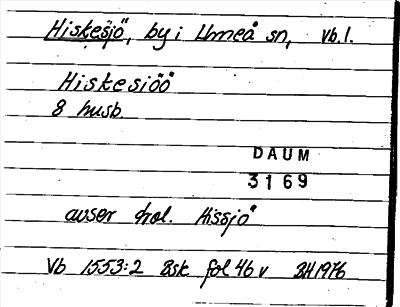 Hiskesjö, by i Umeå sn, Vb.l.
Hiskesiöö
8 husb.
DAUM
3169
avser trol. Hissjö
Vb 1553:2 Bsk fol 46 v BH 1976